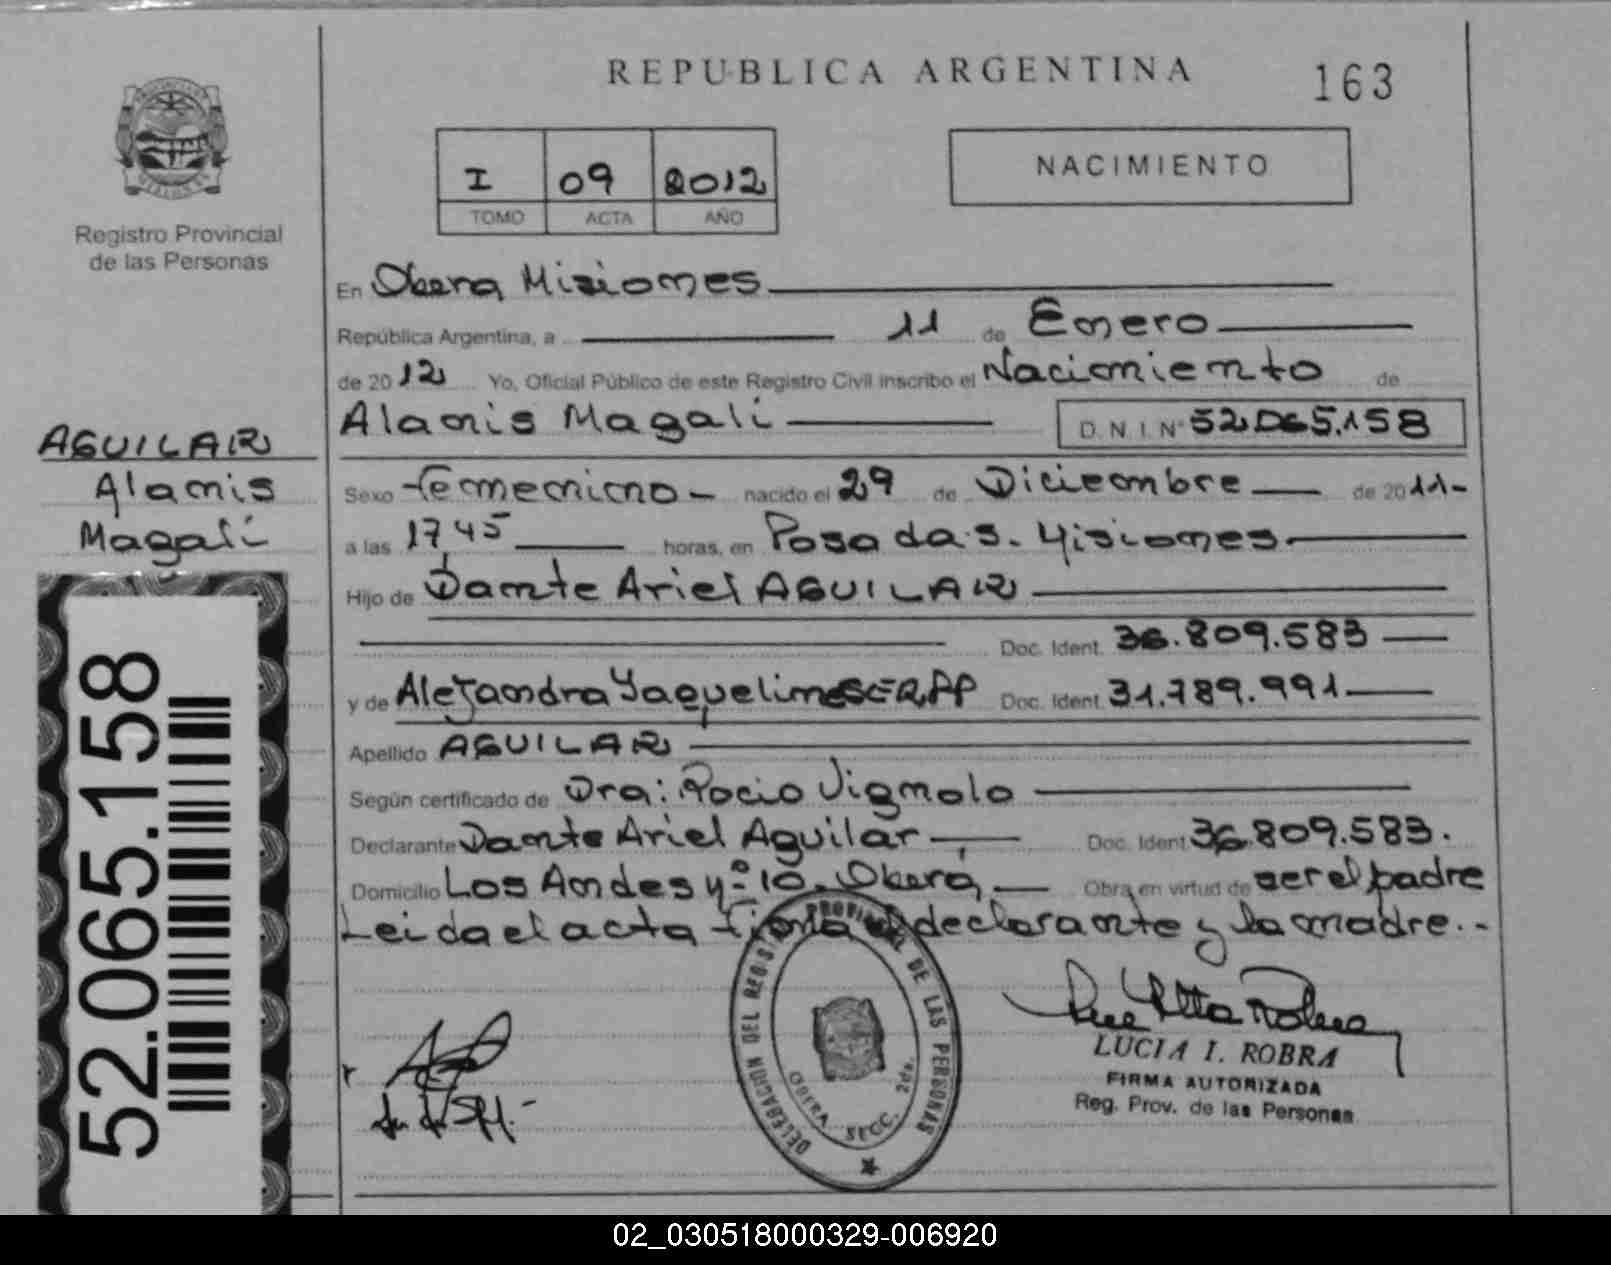 REPUBLICA ARGENTINA
163
I 09 2012
TOMO ACTA AÑO
NACIMIENTO
Registro Provincial
de las Personas
En Obera Misiones
República Argentina, a 11 de Enero
de 2012 Yo, Oficial Público de este Registro Civil inscribo el Nacimiento de
Alanis Magalí D.N.I. Nº 52.065.158
AGUILAR
Alanis
Magalí
Sexo Femenino - nacido el 29 de Diciembre de 2011-
a las 17,45 horas, en Posadas. Misiones.
Hijo de Dante Ariel AGUILAR
Doc. Ident. 36.809.583
y de Alejandra Yaqueline SERPP Doc. Ident. 31.789.991.
Apellido AGUILAR
Según certificado de Dra: Rocio Vignolo
Declarante Dante Ariel Aguilar Doc. Ident. 36.809.583.
Domicilio Los Andes nº 10. Obera, Obra en virtud de ser el padre
Leida el acta firma el declarante y la madre.-
52.065.158
DELEGACION DEL REGISTRO PROVINCIAL DE LAS PERSONAS
OBERA SECC. 2da.
LUCIA I. ROBRA
FIRMA AUTORIZADA
Reg. Prov. de las Personas
02_030518000329-006920